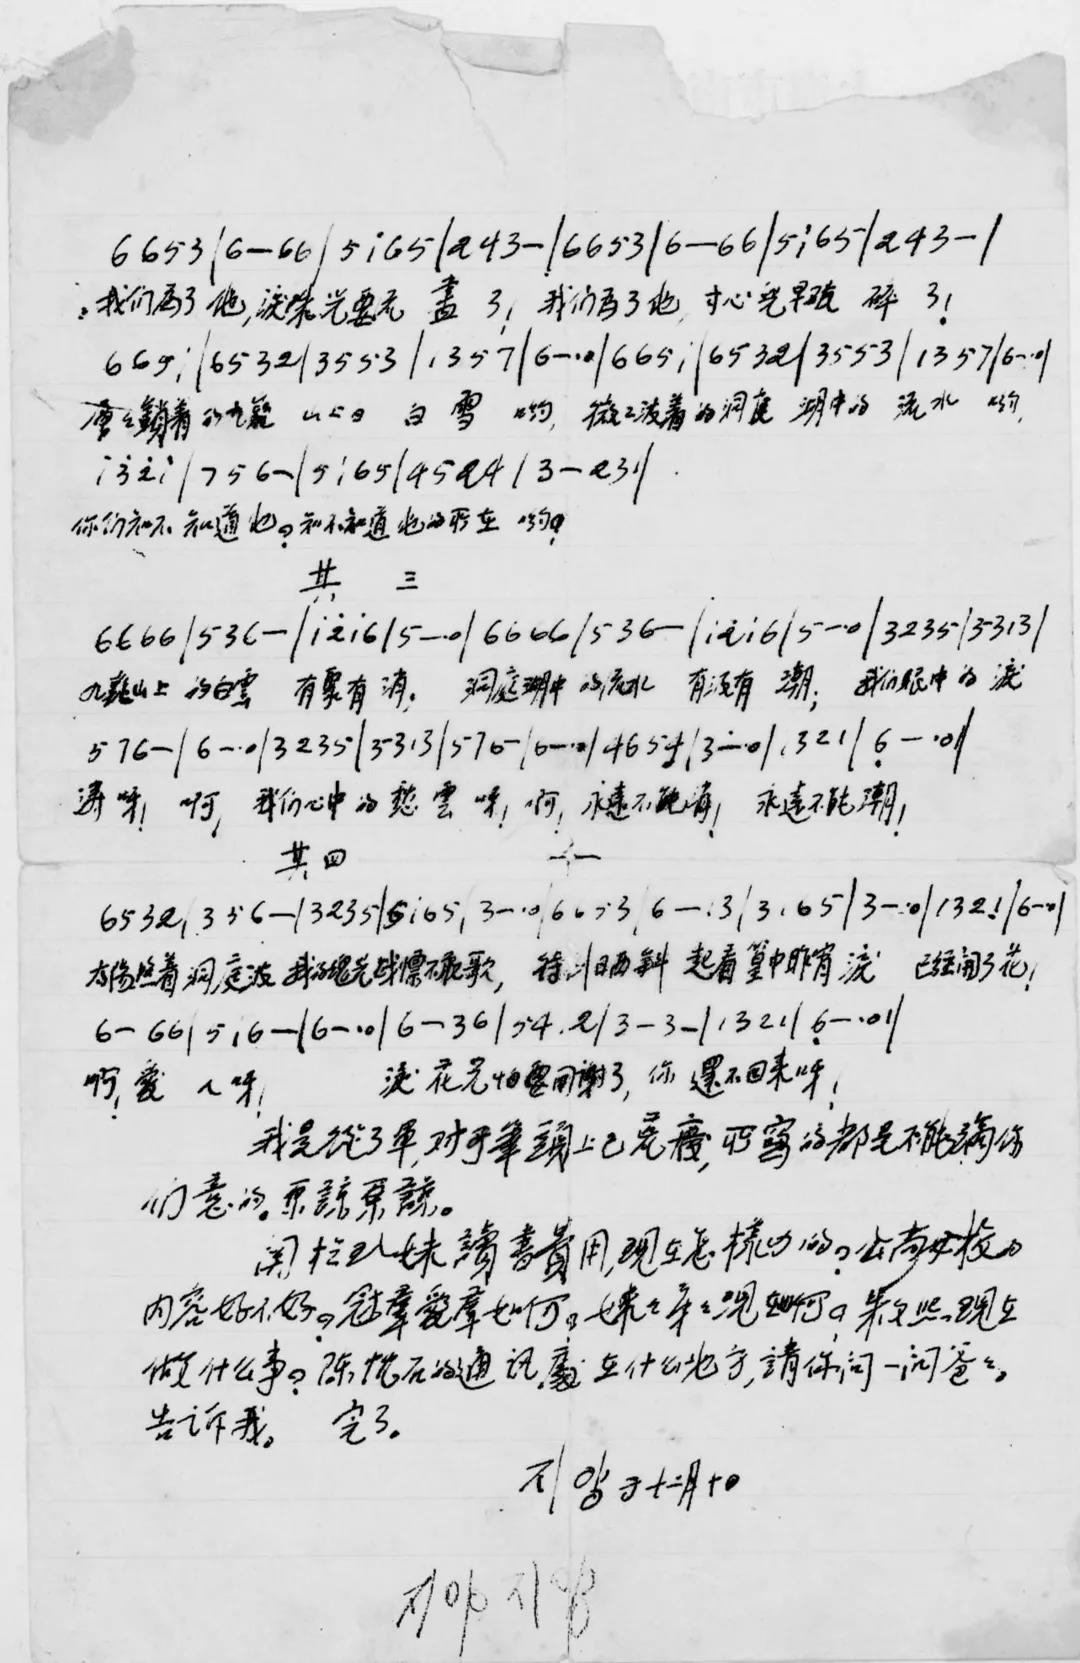 6 6 5 3 | 6 — 6 6 | 5 i 6 5 | 2 4 3 — | 6 6 5 3 | 6 — 6 6 | 5 i 6 5 | 2 4 3 — |
我们为了他,淚珠兒要流 盡 了! 我们为了他,寸心兒早碎 了!
6 6 5 i | 6 5 3 2 | 3 5 5 3 | . 1 3 5 7 | 6 — . 0 | 6 6 5 i | 6 5 3 2 | 3 5 5 3 | 1 3 5 7 | 6 — . 0 |
鎖着的九嶷 山上的 白 雪 哟, 微微波着的洞庭 湖中的 流 水 哟,
i 3 2 i | 7 5 6 — | 5 i 6 5 | 4 5 2 4 | 3 — 2 3 1 |
你们知不 知道他?知不知道他的所在 哟?
其 三
6 6 6 6 | 5 3 6 — | i 2 i 6 | 5 — . 0 | 6 6 6 6 | 5 3 6 — | i 2 i 6 | 5 — . 0 | 3 2 3 5 | 3 3 1 3 |
九嶷山上 的白雲 有聚有消。 洞庭湖中 的流水 有沒有 潮; 我们眼中的 淚
5 7 6 — | 6 — . 0 | 3 2 3 5 | 3 3 1 3 | 5 7 6 — | 6 — . 0 | 4 6 5 4 | 3 — . 0 | . 3 2 1 | 6 — . 0 |
濤 呀! 啊, 我们心中的 愁 雲 呀! 啊, 永遠不能消! 永遠不能潮!
其 四
6 5 3 2 | 3 5 6 — | 3 2 3 5 | 6 i 6 5 | 3 — . 0 | 6 6 5 3 | 6 — . 3 | 3 . 6 5 | 3 — . 0 | 1 3 2 1 | 6 — . 0 |
太陽照着洞庭波 我的魂兒戰慄不敢歌, 待到日西斜 起看篁中昨宵淚 已經開了花!
6 — 6 6 | 5 i 6 — | 6 — . 0 | 6 — 3 6 | 5 4 . 2 | 3 — 3 — | . 1 3 2 1 | 6 — . 0 |
啊,愛 人呀! 淚 花兒怕要開謝了, 你 還不回来呀!
我是從了軍,对于筆頭上已荒廢,所寫的都是不能滿你
们意的。原諒原諒。
妹讀書費用,現在怎樣办的?女校的
内容好不好?羣愛羣如何?妹妹弟弟況如何?現在
做什么事?陈的通讯處在什么地方,請你问一问爸爸。
告诉我。 完了。
于十二月十日